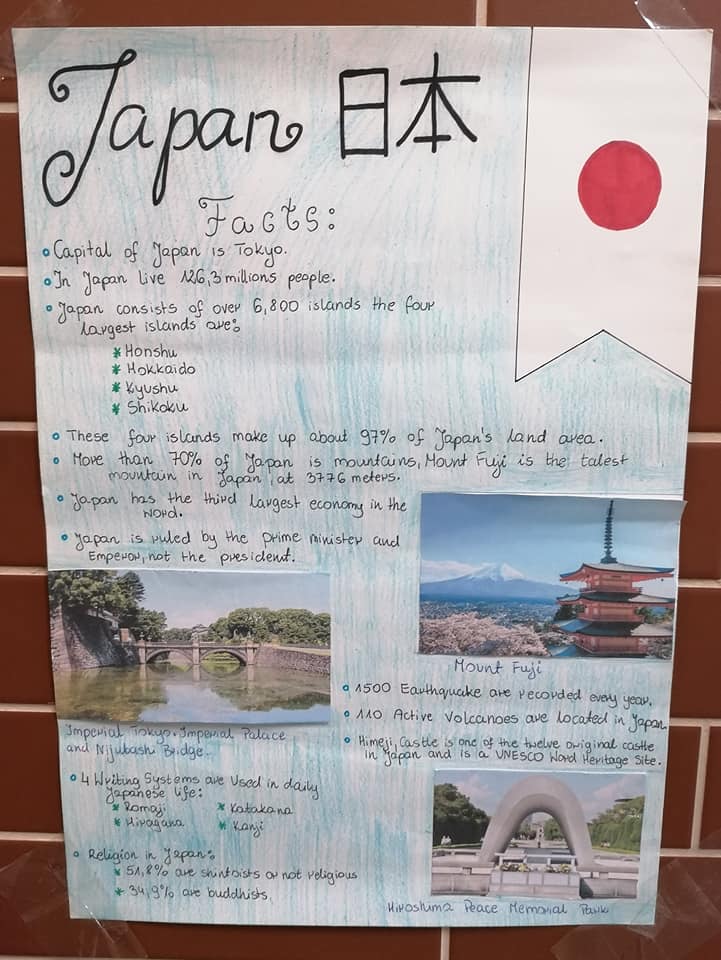 Japan 日本
Facts:
Capital of Japan is Tokyo.
In Japan live 126,3 millions people.
Japan consists of over 6,800 islands the four
largest islands are:
Honshu
Hokkaido
Kyushu
Shikoku
These four islands make up about 97% of Japan's land area.
More than 70% of Japan is mountains, Mount Fuji is the talest
mountain in Japan, at 3776 meters.
Japan has the third largest economy in the
word.
Japan is ruled by the prime minister and
Emperor, not the president.
Mount Fuji
Imperial Tokyo. Imperial Palace
and Nijubashi Bridge.
1500 Earthquake are recorded every year.
110 Active Volcanoes are located in Japan
Himeji Castle is one of the twelve original castle
in Japan and is a UNESCO Word Heritage Site.
4 Writing Systems are Used in daily
Japanese life:
Romaji
Katakana
Hiragana
Kanji
Religion in Japan:
51,8% are shintoists or not religious
34,9% are buddhists,
Hiroshima Peace Memorial Park